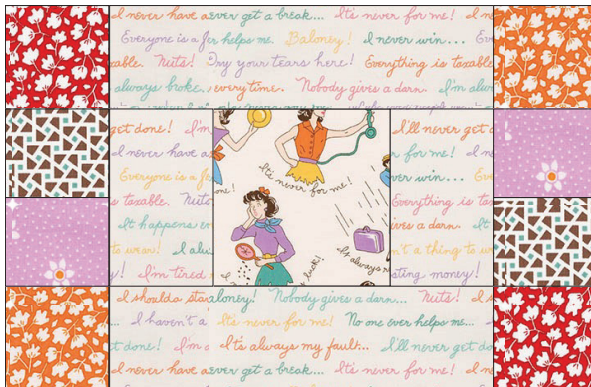 I never have a ever get a break... It's never for me!
Everyone is a helps me. Baloney! I never win...
Nuts! Dry your tears here! Everything is taxable.
always broke. every time. Nobody gives a darn. I'm
get done! I'm
I never have a
Everyone is a
is taxable. Nuts
It happens
to wear!
I'm tired
It's never for me!
one!
luck!
It always
I'll never get
for me!
ever win...
Everything is
gives a darn. It
n't a thing to
sting money!
I shoulda sta aloney! Nobody gives a darn... Nuts!
I haven't a It's never for me! No one ever helps me...
t done! I'm It's always my fault... I'll never get d
I never have a ever get a break... It's never for me!